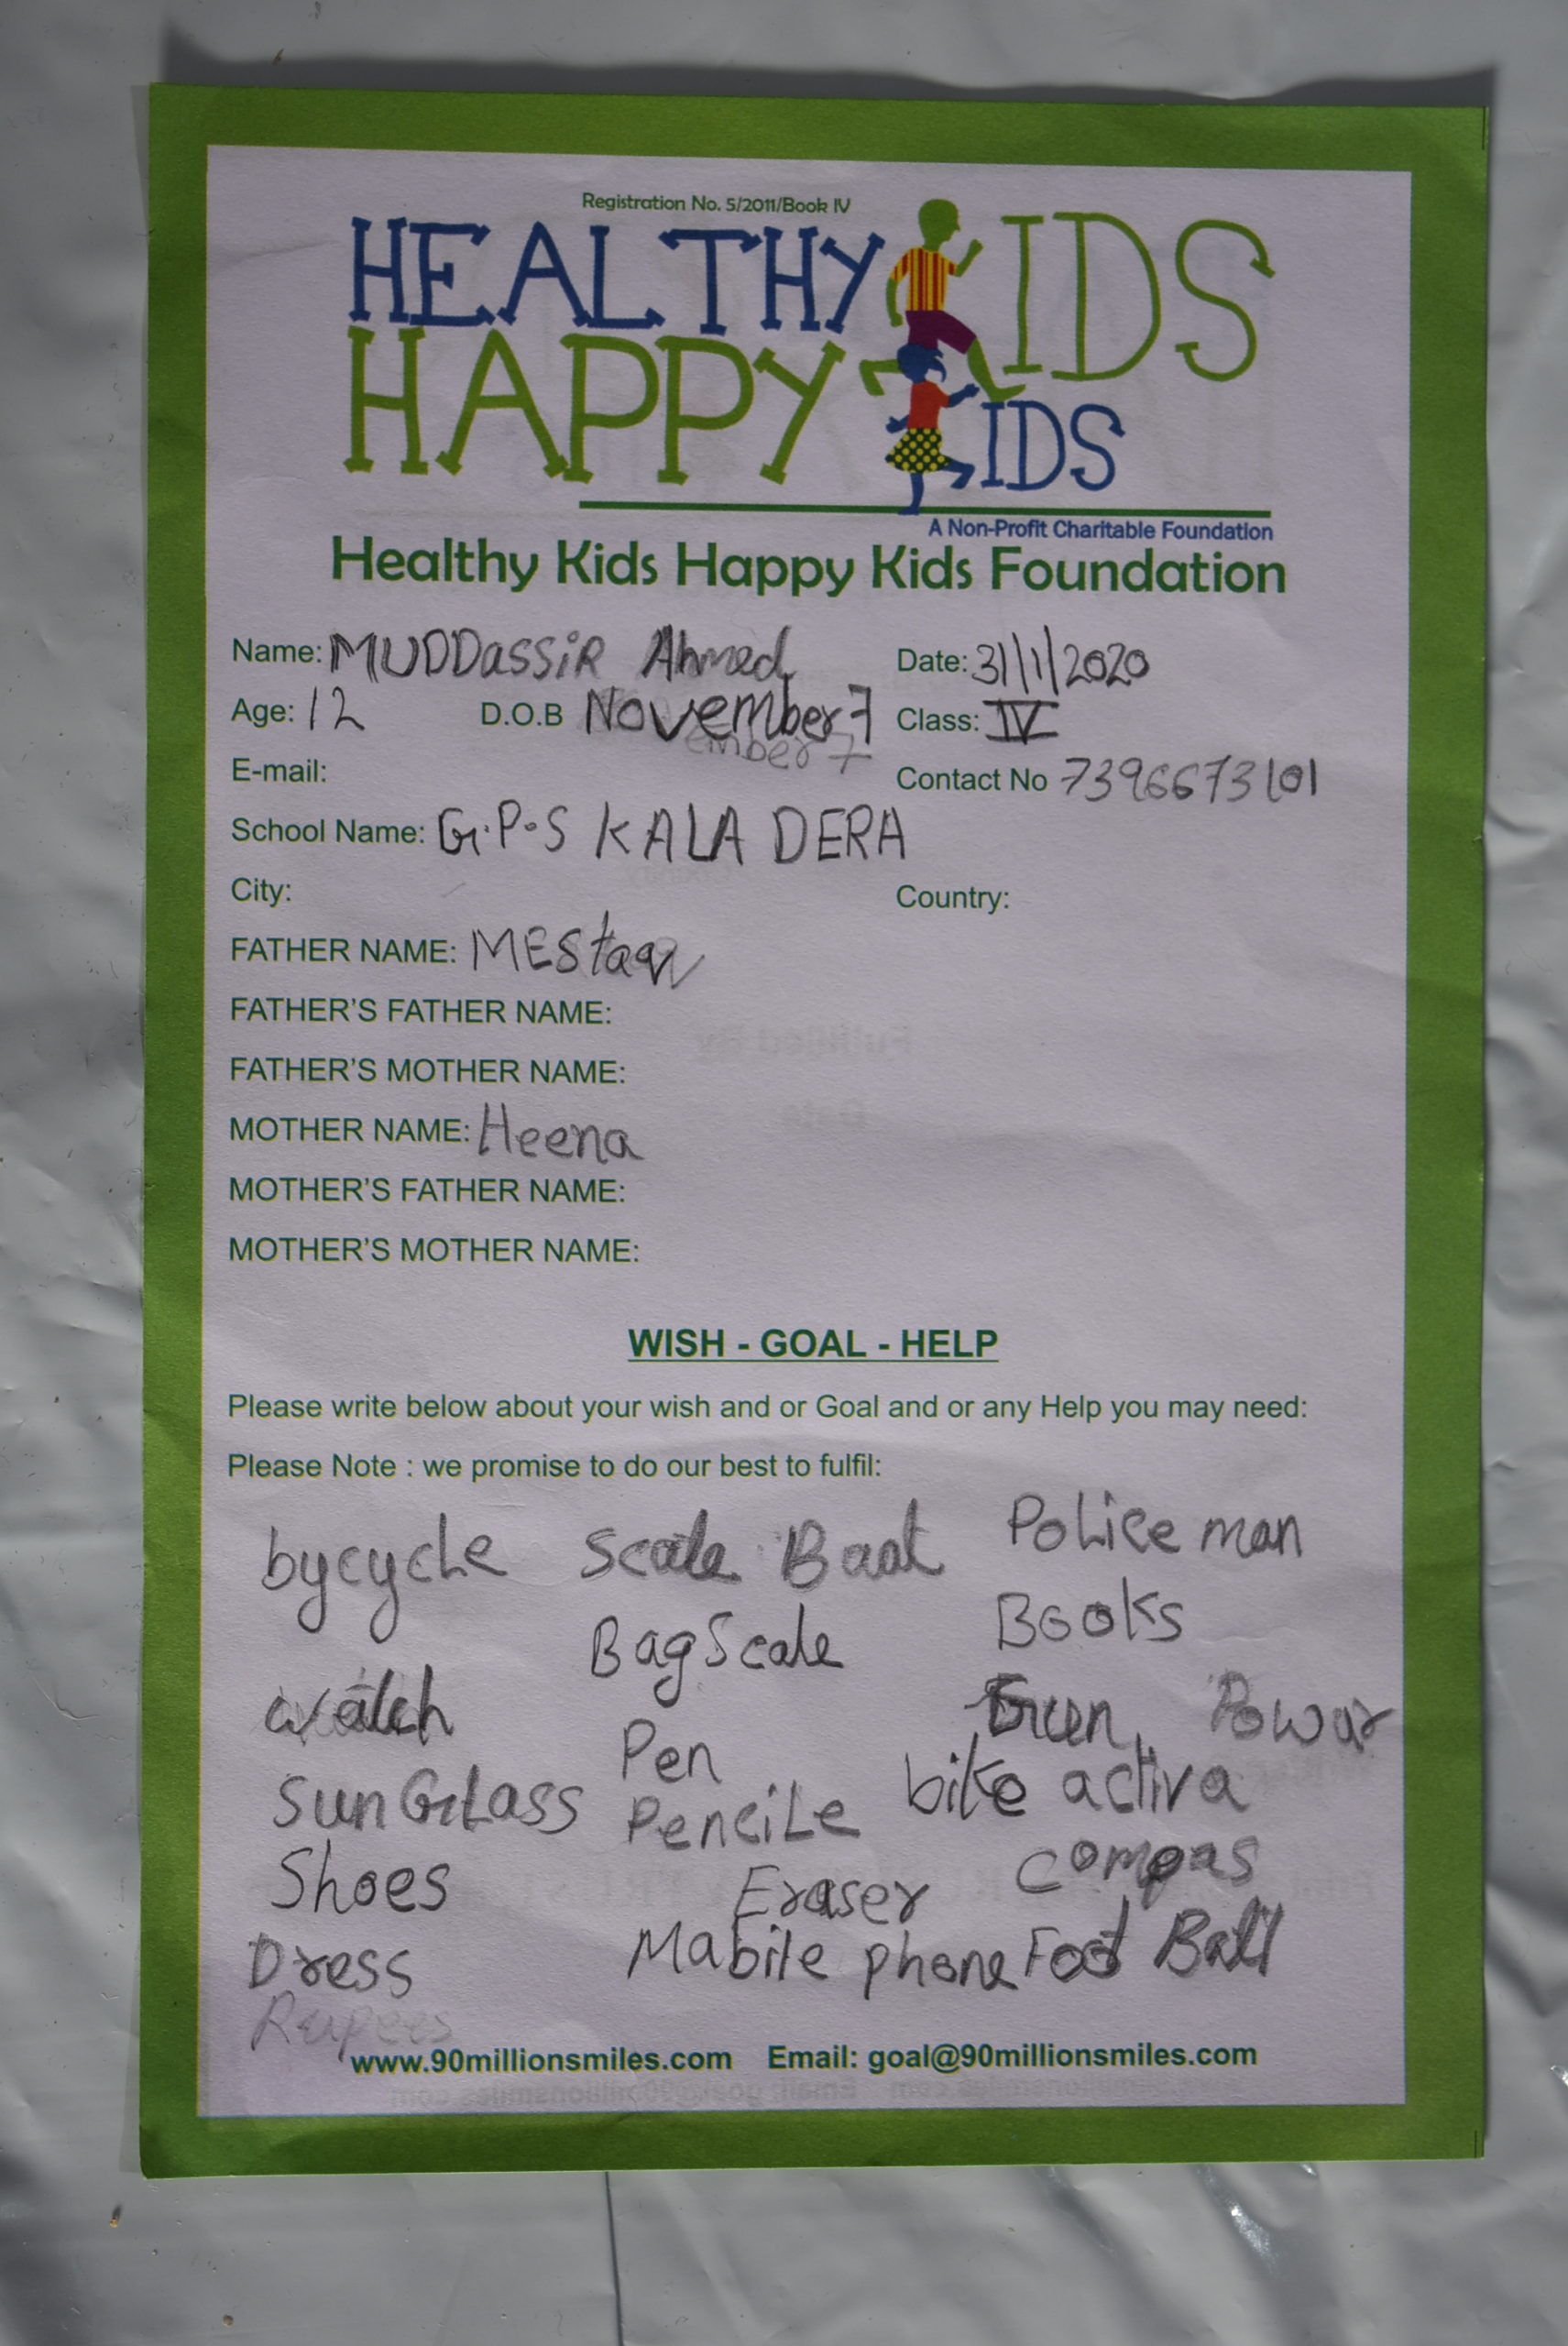 Registration No. 5/2011/Book IV
HEALTHY KIDS
HAPPY KIDS
A Non-Profit Charitable Foundation
Healthy Kids Happy Kids Foundation
Name: MUDDASSIR Ahmed Date: 31/1/2020
Age: 12 D.O.B November 7 Class: IV
ember 7
E-mail: Contact No 7396673101
School Name: G.P.S KALA DERA
City: Country:
FATHER NAME: MEStaq
FATHER'S FATHER NAME:
FATHER'S MOTHER NAME:
MOTHER NAME: Heena
MOTHER'S FATHER NAME:
MOTHER'S MOTHER NAME:
WISH - GOAL - HELP
Please write below about your wish and or Goal and or any Help you may need:
Please Note : we promise to do our best to fulfil:
bycycle Scale Baat Police man
BagScale Books
watch Gun Powar
Pen bike activa
SunGlass Pencile
Shoes Eraser Compas
Dress Mabile phone Foot Ball
Rupees
www.90millionsmiles.com Email: goal@90millionsmiles.com